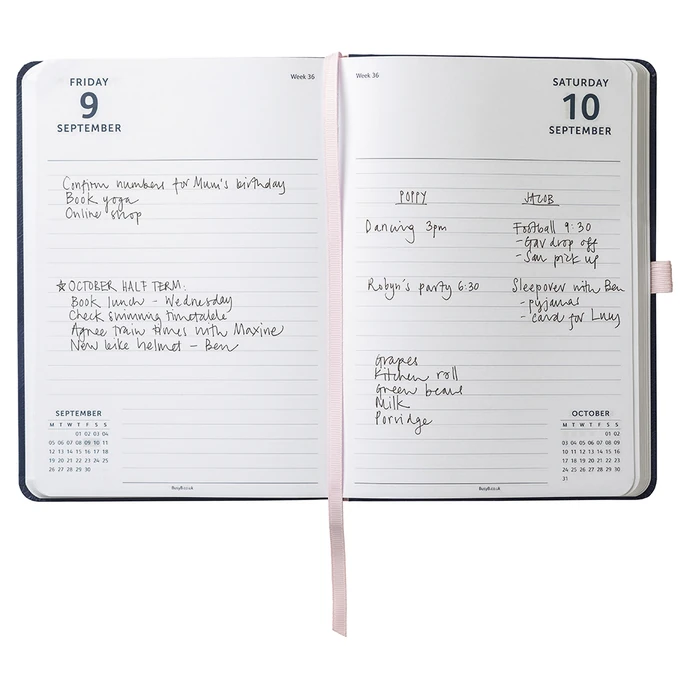 FRIDAY
9
SEPTEMBER
Week 36
Confirm numbers for Mum's birthday
Book yoga
Online shop
☆ OCTOBER HALF TERM:
Book lunch - Wednesday
Check swimming timetable
Agree train times with Maxine
New bike helmet - Ben
SEPTEMBER
M T W T F S S
01 02 03 04
05 06 07 08 09 10 11
12 13 14 15 16 17 18
19 20 21 22 23 24 25
26 27 28 29 30
BusyB.co.uk
Week 36
SATURDAY
10
SEPTEMBER
POPPY
Dancing 3pm
Robyn's party 6:30
JACOB
Football 9:30
- Gav drop off
- Sam pick up
Sleepover with Ben
- pyjamas
- card for Lucy
Grapes
Kitchen roll
Green beans
Milk
Porridge
OCTOBER
M T W T F S S
01 02
03 04 05 06 07 08 09
10 11 12 13 14 15 16
17 18 19 20 21 22 23
24 25 26 27 28 29 30
31
BusyB.co.uk